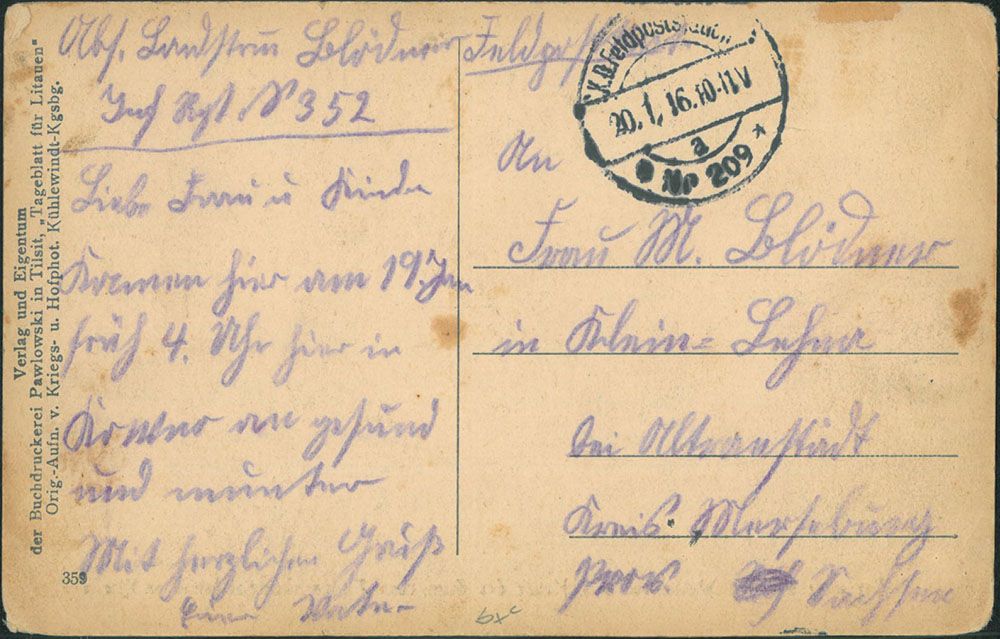 Verlag und Eigentum
der Buchdruckerei Pawlowski in Tilsit, „Tageblatt für Litauen“
Orig.-Aufn. v. Kriegs- u. Hofphot. Kühlewindt-Kgsbg.
359
Abs. Landstru Blödner
Inf Rgt. 352
Liebe Frau u Kinder
Kamen hier am 19. Jan
früh 4. Uhr hier in
an gesund
und munter
Mit herzlichen Gruß
Euer Vater
Feldpost
K.D. Feldpoststation
20. 1. 16. 10-11 V
a
* Nr 209 *
An
Frau M. Blödner
in Klein-Lehna
bei Altranstädt
Kreis. Merseburg
Prov. Sachsen